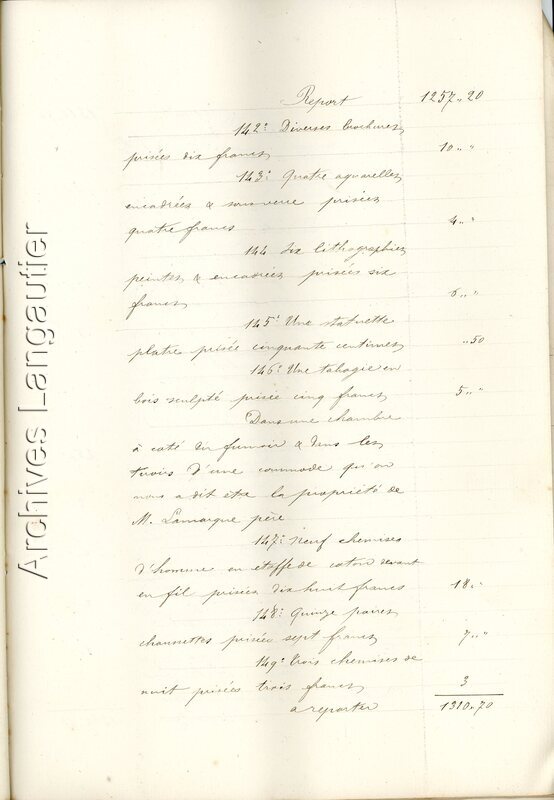 Report 1257 „ 20
142° Diverses brochures
prisées dix francs 10 „ „
143° Quatre aquarelles
encadrées & sous verre prisées
quatre francs 4 „ „
144 Six lithographies
peintes & encadrées prisées six
francs 6 „ „
145° Une statuette
platre prisée cinquante centimes „ 50
146° Une tabagie en
bois sculpté prisée cinq francs 5 „ „
Dans une chambre
à coté du fumoir & dans les
tiroirs d'une commode qu'on
nous a dit etre la propriété de
M. Lamarque père
147° Neuf chemises
d'homme en etoffe de coton devant
en fil prisées dix huit francs 18 „
148° Quinze paires
chaussettes prisées sept francs 7 „ „
149° Trois chemises de
nuit prisées trois francs 3
a reporter 1310 „ 70
Archives Langautier